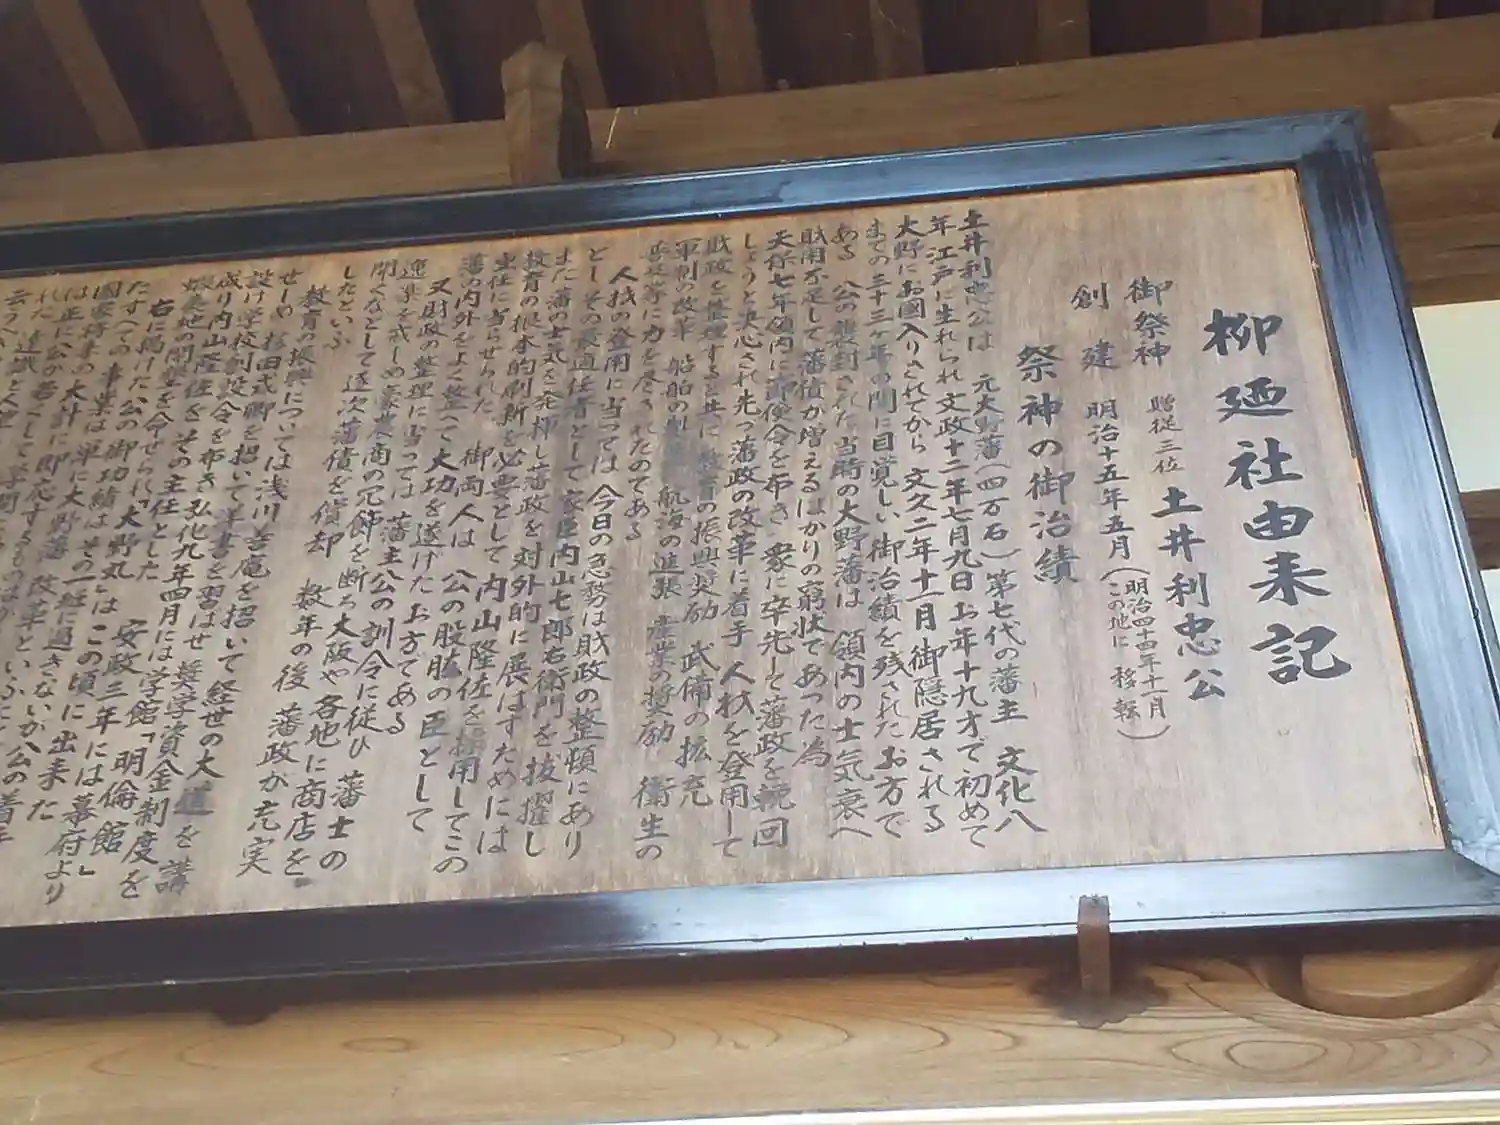 柳廼社由来記
御祭神 贈従三位 土井利忠公
創建 明治十五年五月(明治四十四年十一月この地に移転)
祭神の御治績
土井利忠公は 元大野藩(四万石)第七代の藩主 文化八
年江戸に生れられ文政十二年七月九日お年十九才で初めて
大野にお國入りされてから 文久二年十一月御隠居される
までの三十三ヶ年の間に目覚しい御治績を残されたお方で
ある 公の襲封された当時の大野藩は 領内の士気衰へ
財用不足して藩債が増えるばかりの窮状であった為
天保七年領内に節倹令を布き 衆に卒先して藩政を挽回
しようと決心され先づ藩政の改革に着手 人材を登用して
財政を整理すると共に 教育の振興奨励 武備の拡充
軍制の改革 船舶の 航海の進張 産業の奨励 衛生の
普及等に力を尽されたのである
人材の登用に当っては 今日の急務は財政の整頓にあり
としその最適任者として家臣内山七郎右衛門を抜擢し
また藩の士気を発揮し藩政を対外的に展ばすためには
教育の根本的刷新を必要として 内山隆佐を採用してこの
主任に当らせられた 御両人は 公の股肱の臣として
藩の内外をよく整へて大功を遂げたお方である
又財政の整理に当っては 藩主公の訓令に従ひ 藩士の
遊集を戒しめ豪農商の冗飾を断ち大阪や各地に商店を
開くなどして逐次藩債を償却 数年の後 藩政が充実
したといふ
教育の振興については浅川善庵を招いて経世の大道を講
せしめ 杉田式卿を招いて洋書を習はせ 奨学資金制度を
設け学校創設令を布き 弘化九年四月には学館「明倫館」
成り内山隆佐をその主任とした 安政三年には幕府より
蝦夷地の開墾を令せられ「大野丸」はこの頃に出来た
右に掲げた公の御功績はその一経に過ぎないが公の着手
たすべての事業は単に大野藩 改革といふ
國家将来の大計に即応するもの
は正に公が若くして学問
れた 達識と人望
云うべ